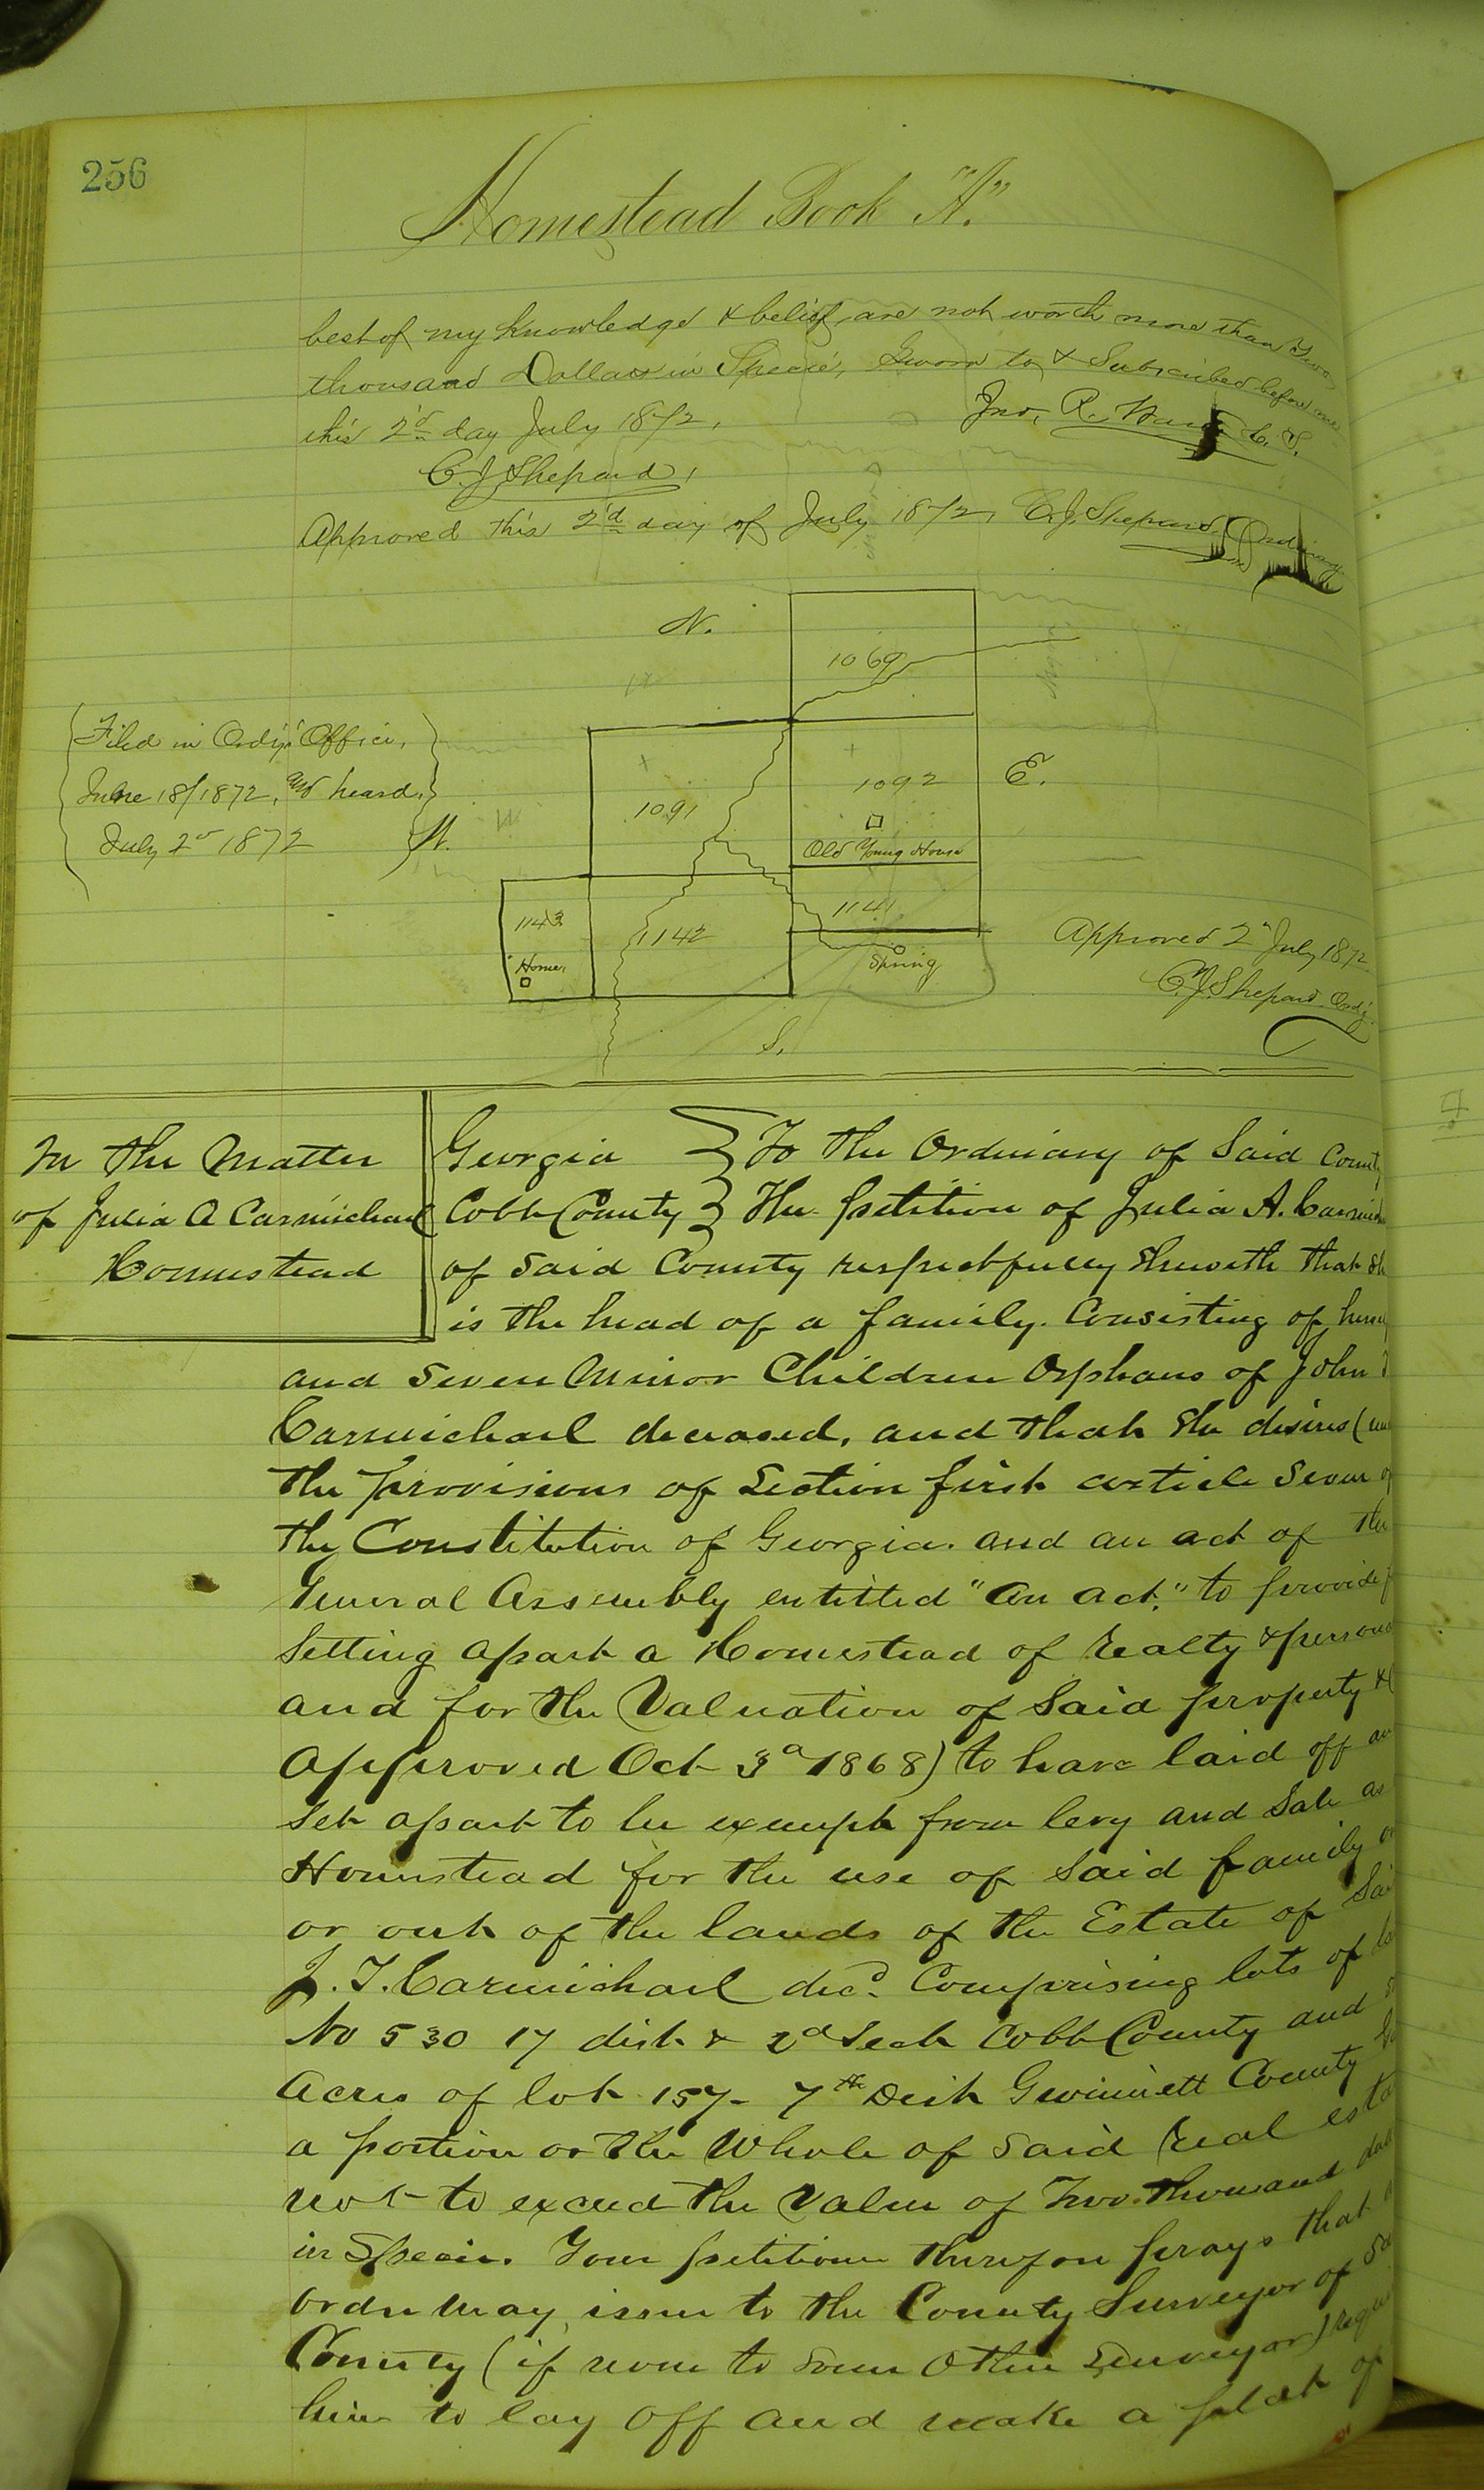 256
Homestead Book "A."
best of my knowledge & belief, are not worth more than Two
thousand Dollars in Specie, Sworn to & Subscribed before me
this 2d day July 1872, Jno. R. C. S.
C. J. Shepard,
Approved this 2d day of July 1872, C. J. Shepard Ordinary
N.
1069
Filed in Ordy's Office,
June 18/1872, and heard,
July 2d 1872
W.
1091
1092
E.
Old Young House
1143
Home
1142
1141
Spring
Approved 2d July 1872
C. J. Shepard Ordy
S.
In the Matter
of Julia A Carmichael
Homestead
Georgia } To the Ordinary of Said County
Cobb County } The petition of Julia A.
of Said County respectfully Sheweth that
is the head of a family. Consisting of
and Seven Minor Children Orphans of John
Carmichael deceased, and that She desires (
the provisions of Section first article Seven of
the Constitution of Georgia. and an act of the
General Assembly entitled "An act," to provide
Setting apart a Homestead of realty &
and for the Valuation of Said property &
approved Oct 3d 1868) to have laid off
Set apart to be exempt from levy and Sale as
Homestead for the use of Said family
or out of the lands of the Estate of
J. T. Carmichael decd. Comprising lots of
No 530 17 dist & 2d Sect Cobb County and
Acres of lot 157- 7th Dist Gwinnett County
a portion or the Whole of Said real
not to exceed the Value of Two thousand
in Specie. Your petitioner therefore prays that
order may issue to the County Surveyor of
County (if none to Some Other Surveyor)
him to lay off and make a plat of